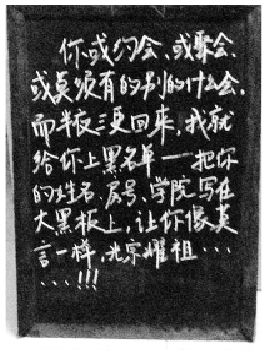 你或约会、或聚会、
或莫须有的别的什么会,
而半夜三更回来,我就
给你上黑名单——把你
的姓名、房号、学院写在
大黑板上,让你像莫
言一样,光宗耀祖···
···!!!